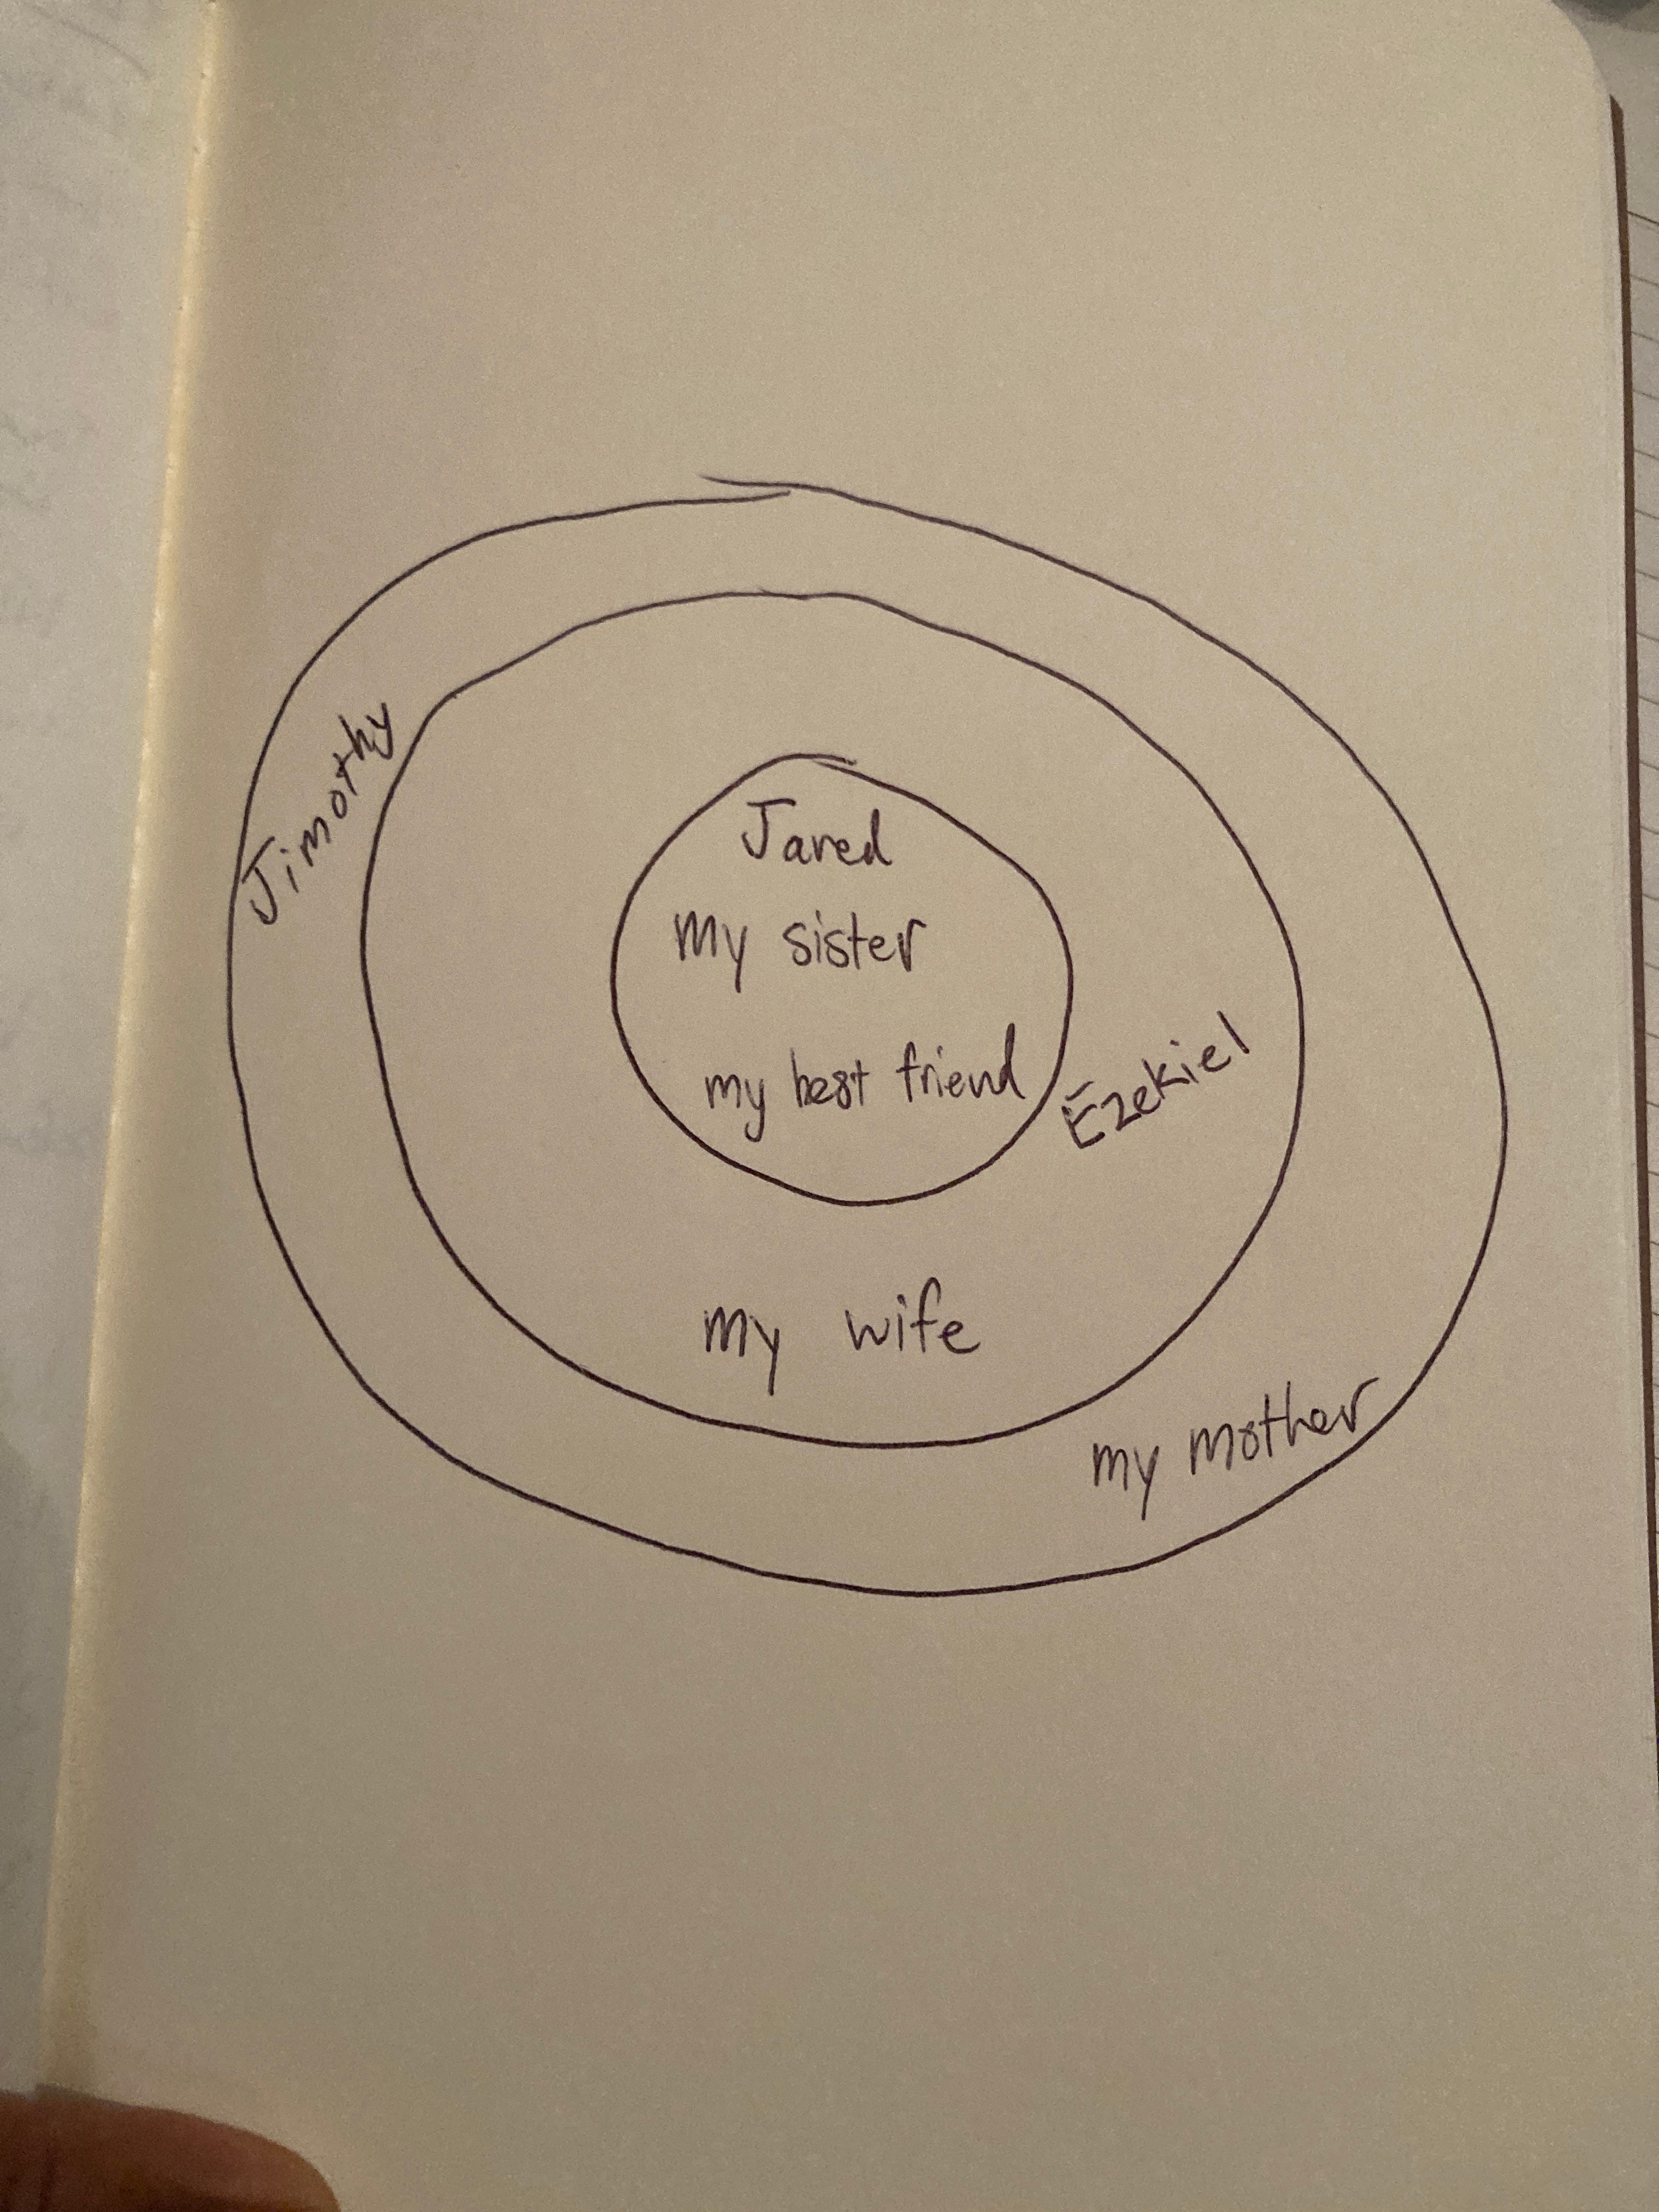 Jimothy
Jared
My sister
my best friend
Ezekiel
my wife
my mother